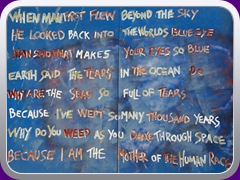 WHEN MAN FIRST FLEW BEYOND THE SKY
HE LOOKED BACK INTO THE WORLDS BLUE EYE
MAN SAID WHAT MAKES YOUR EYES SO BLUE
EARTH SAID THE TEARS IN THE OCEAN DO
WHY ARE THE SEAS SO FULL OF TEARS
BECAUSE I'VE WEPT SO MANY THOUSAND YEARS
WHY DO YOU WEEP AS YOU DANCE THROUGH SPACE
BECAUSE I AM THE MOTHER OF THE HUMAN RACE